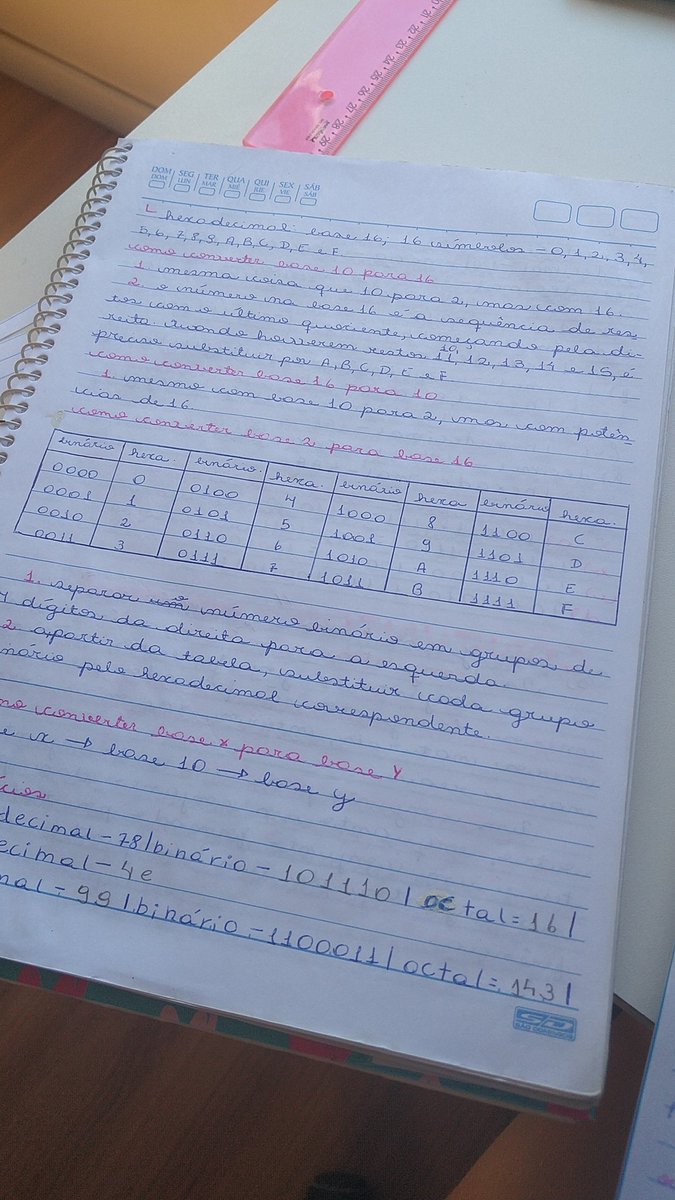 DOM SEG TER QUA QUI SEX SÁB
DOM LUN MAR MIÉ JUE VIE SÁB
hexadecimal: base 16; 16 símbolos - 0, 1, 2, 3, 4,
5, 6, 7, 8, 9, A, B, C, D, E e F
como converter base 10 para 16
1. mesma coisa que 10 para 2, mas com 16.
2. o número na base 16 é a sequência de res-
tos com o último quociente, começando pela di-
reita. Quando houverem restos 10, 11, 12, 13, 14 e 15, é
preciso substituir por A, B, C, D, E e F
como converter base 16 para 10
1. mesmo com base 10 para 2, mas com potên-
cias de 16.
como converter base 2 para base 16
binário hexa. binário. hexa. binário hexa binário hexa.
0000 0 0100 4 1000 8 1100 C
0001 1 0101 5 1001 9 1101 D
0010 2 0110 6 1010 A 1110 E
0011 3 0111 7 1011 B 1111 F
1. separar o número binário em grupos de
4 dígitos da direita para a esquerda.
2. apartir da tabela, substituir cada grupo
nário pelo hexadecimal correspondente.
mo converter base x para base y
e x → base 10 → base y
cícios
decimal - 78 | binário - 101110 | octal = 16 |
ecimal - 4e
mal = 99 | binário - 1100011 | octal = 143 |
SÃO DOMINGOS